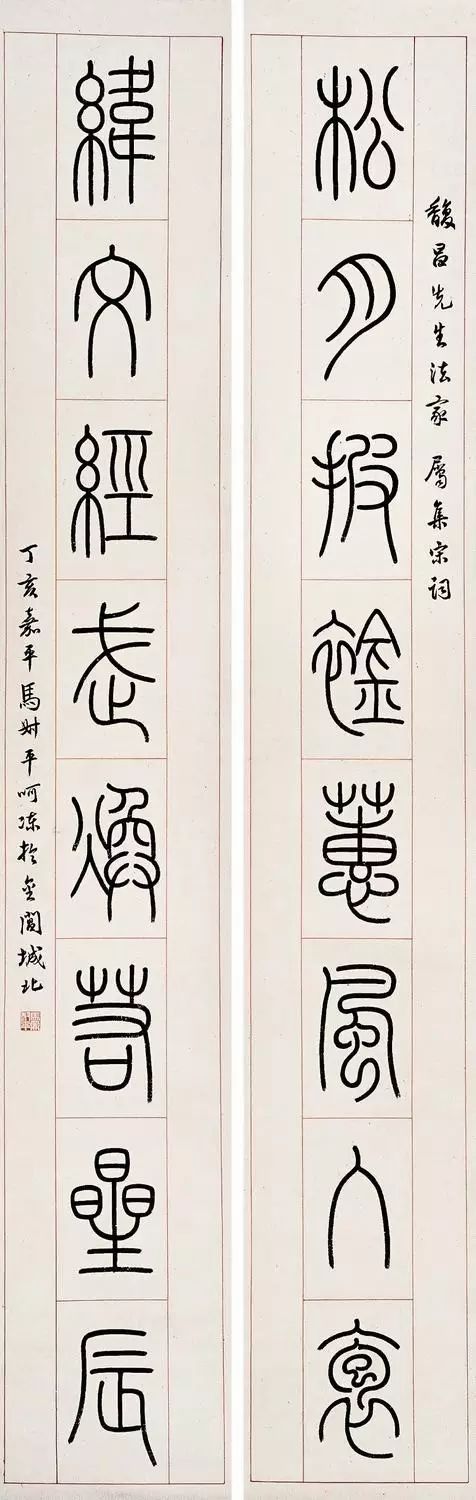 馥昌先生法家 屬集宋詞
松月披襟蕙風入褱
緯文經武煥若星辰
丁亥嘉平馬平呵凍於金閶城北